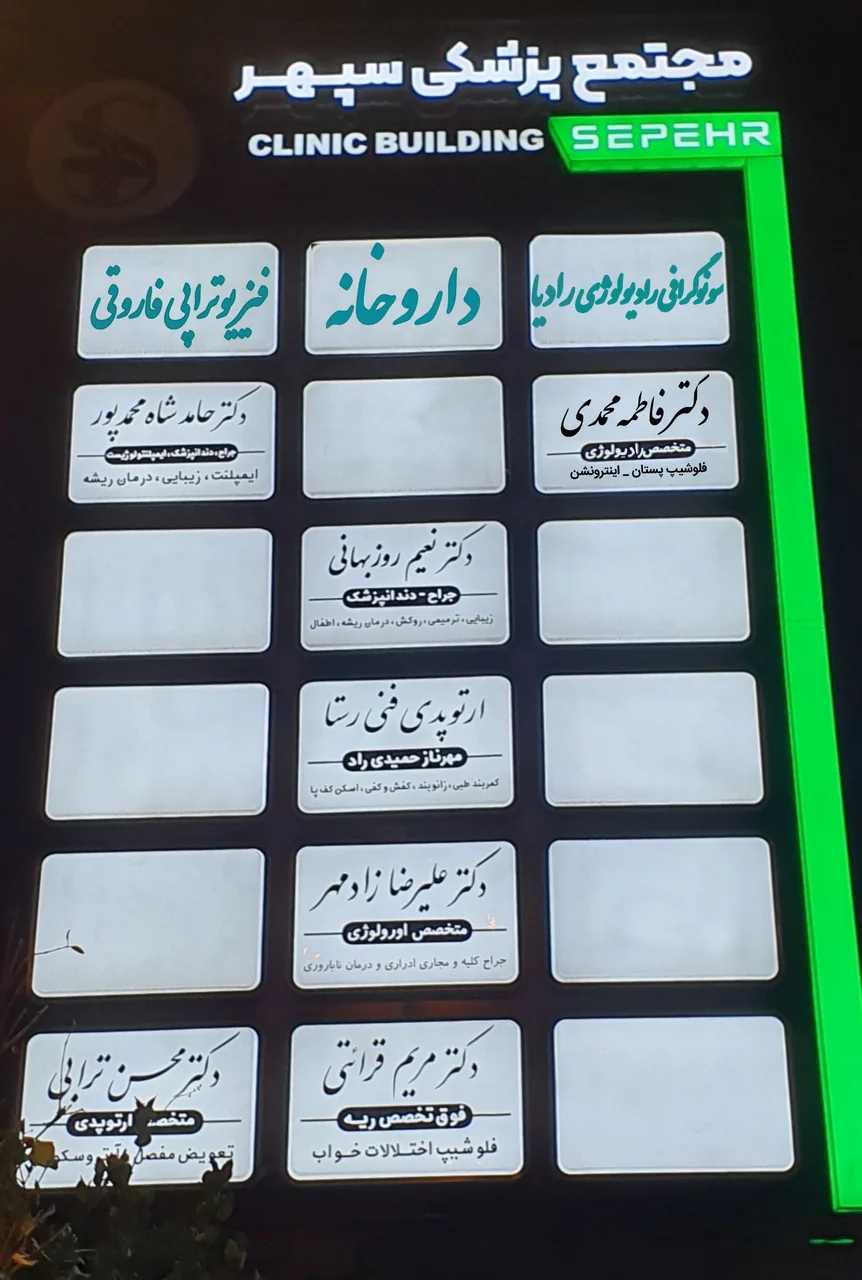 مجتمع پزشکی سپهر
CLINIC BUILDING SEPEHR
سونوگرافی رادیولوژی رادیا
داروخانه
فیزیوتراپی فاروقی
دکتر فاطمه محمدی
متخصص رادیولوژی
فلوشیپ پستان _ اینترونشن
دکتر حامد شاه محمدپور
جراح، دندانپزشک، ایمپلنتولوژیست
ایمپلنت، زیبایی، درمان ریشه
دکتر نعیم روزبهانی
جراح - دندانپزشک
زیبایی، ترمیمی، روکش، درمان ریشه، اطفال
ارتوپدی فنی رستا
مهرناز حمیدی راد
کمربند طبی، زانوبند، کفش و کفی، اسکن کف پا
دکتر علیرضا زادمهر
متخصص اورولوژی
جراح کلیه و مجاری ادراری و درمان ناباروری
دکتر مریم قرائتی
فوق تخصص ریه
فلوشیپ اختلالات خواب
دکتر محسن ترابی
متخصص ارتوپدی
تعویض مفصل